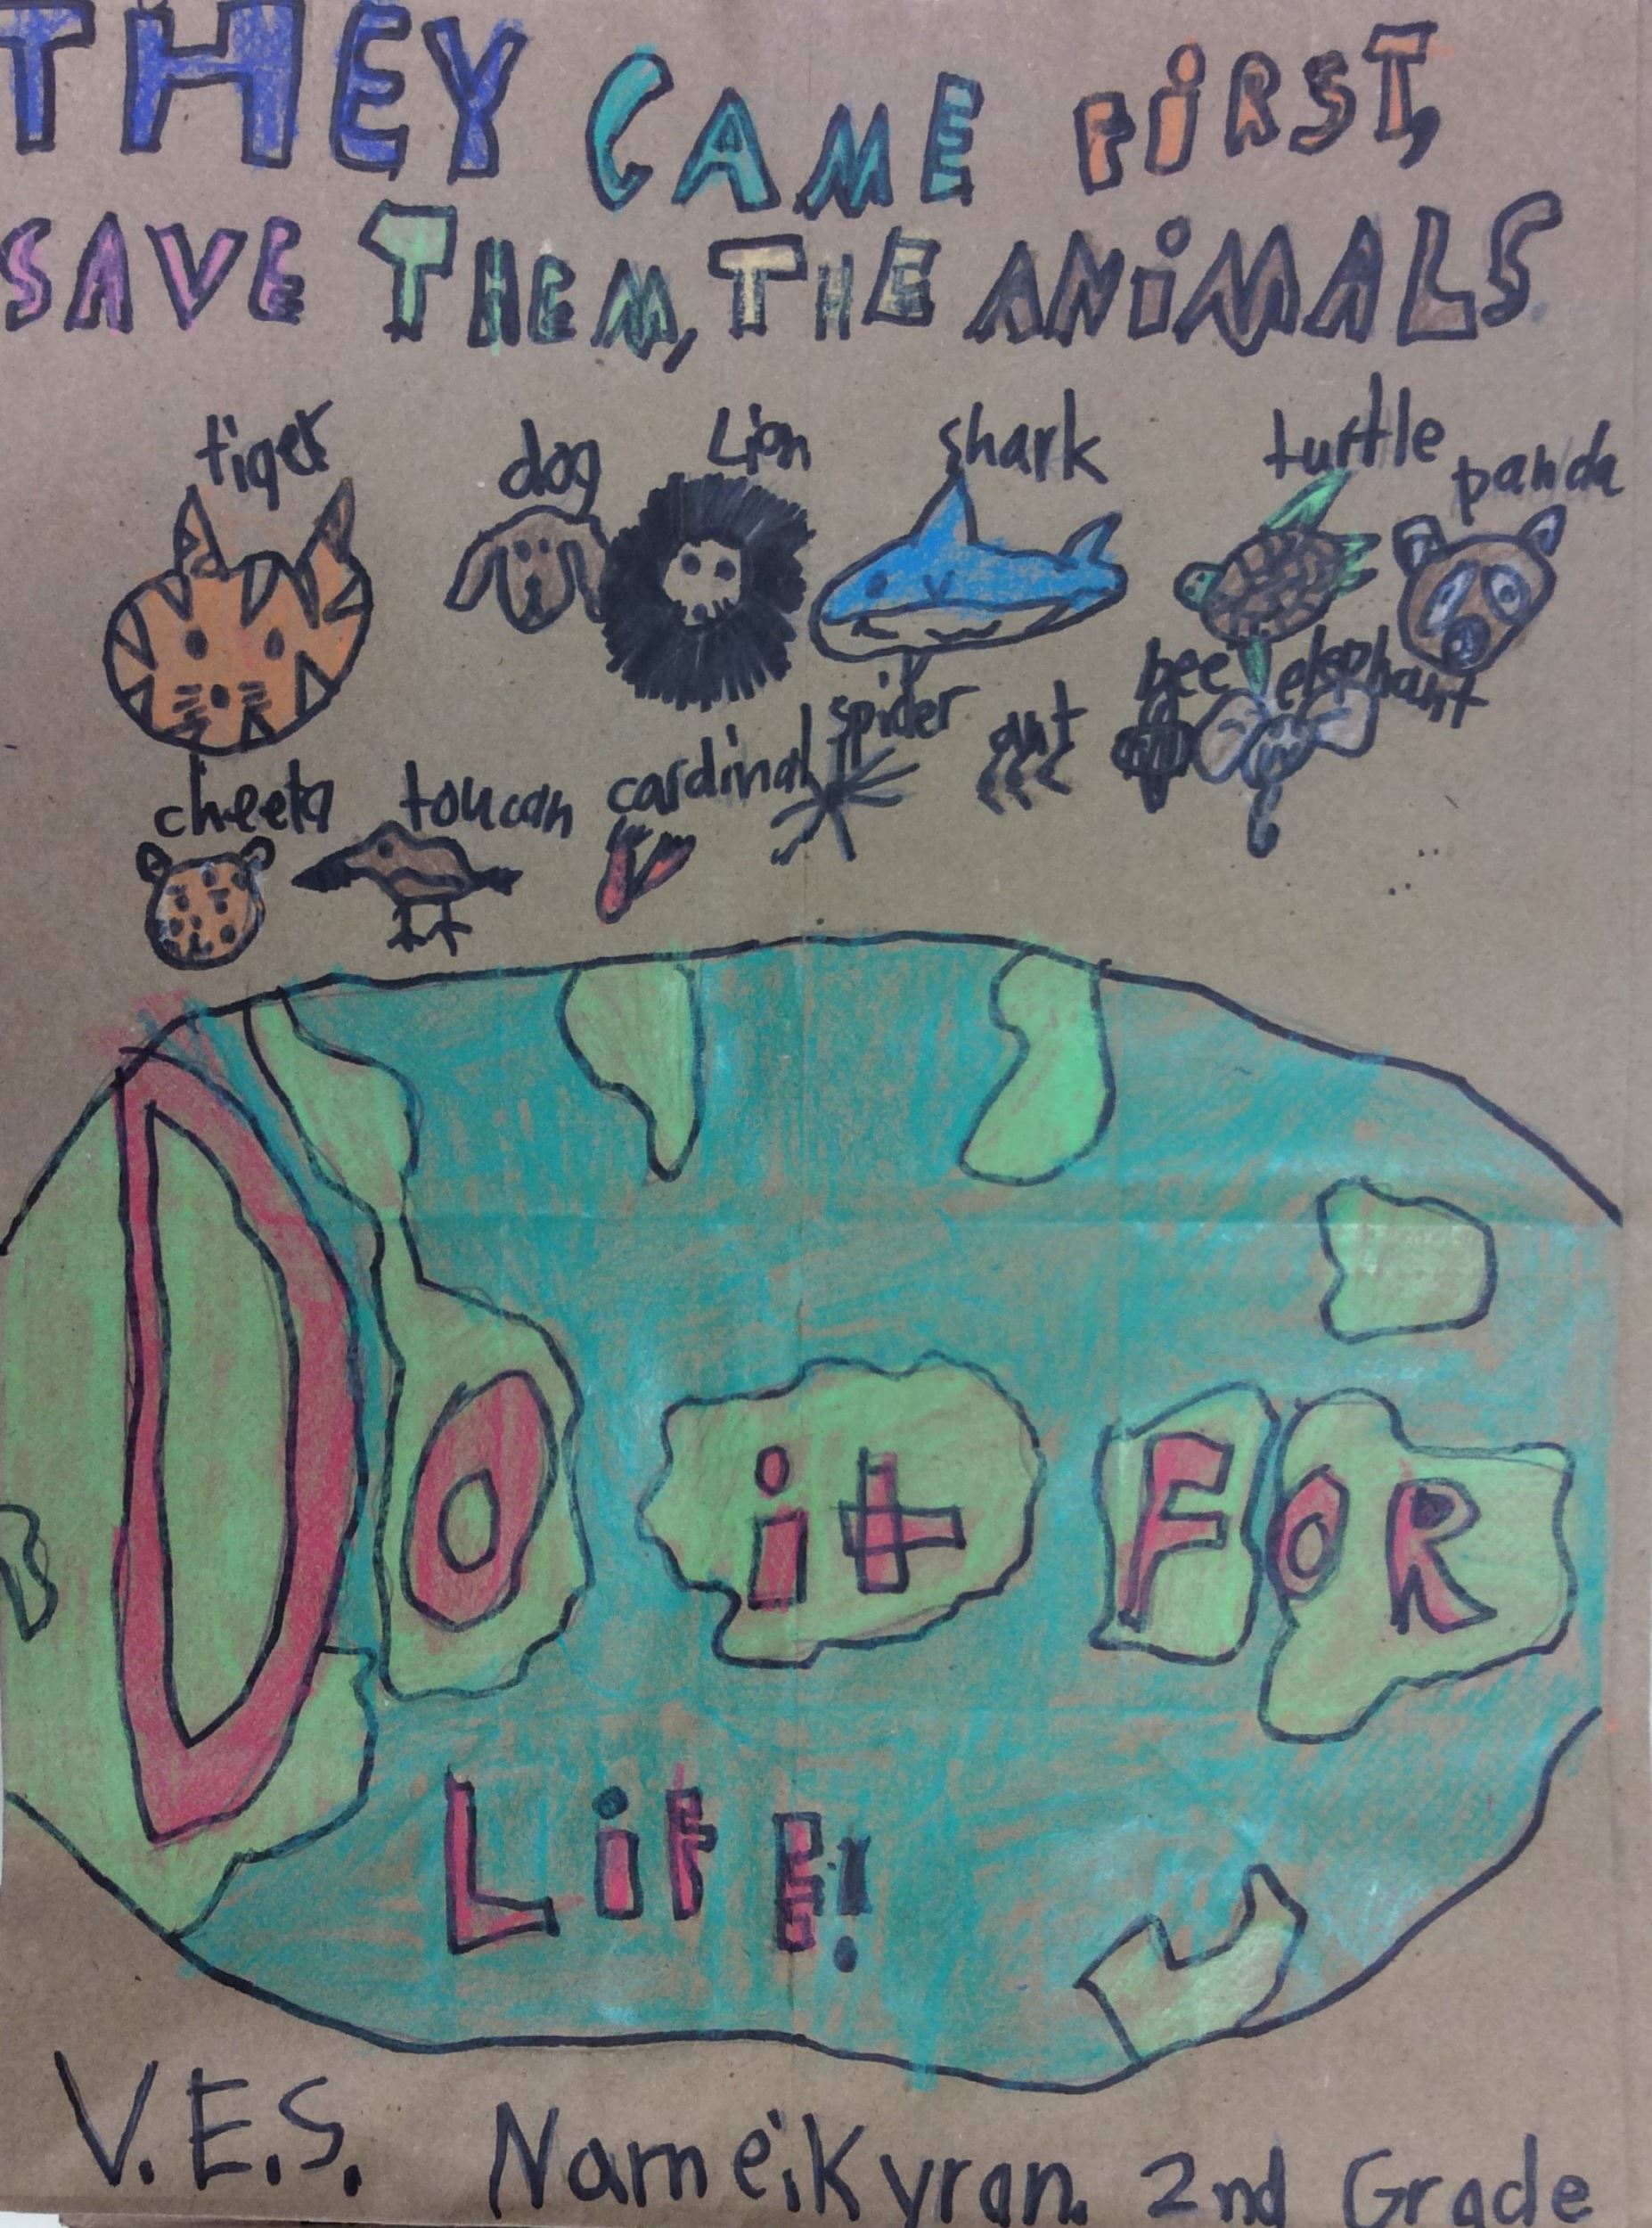 THEY CAME FiRST,
SAVE THEM, THE ANiMALS.
tiger dog Lion shark turtle panda
cheeta toucan cardinal spider ant bee elephant
DO it FOR
LiFE!
V.E.S. Name: Kyran. 2nd Grade